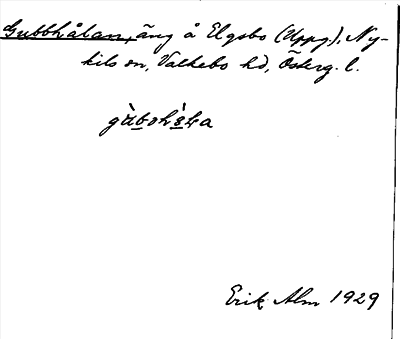 Gubbhålan, äng å Elgsbo (Uppg.), Ny-
kils sn, Valkebo hd, Österg. l.
Erik Alm 1929